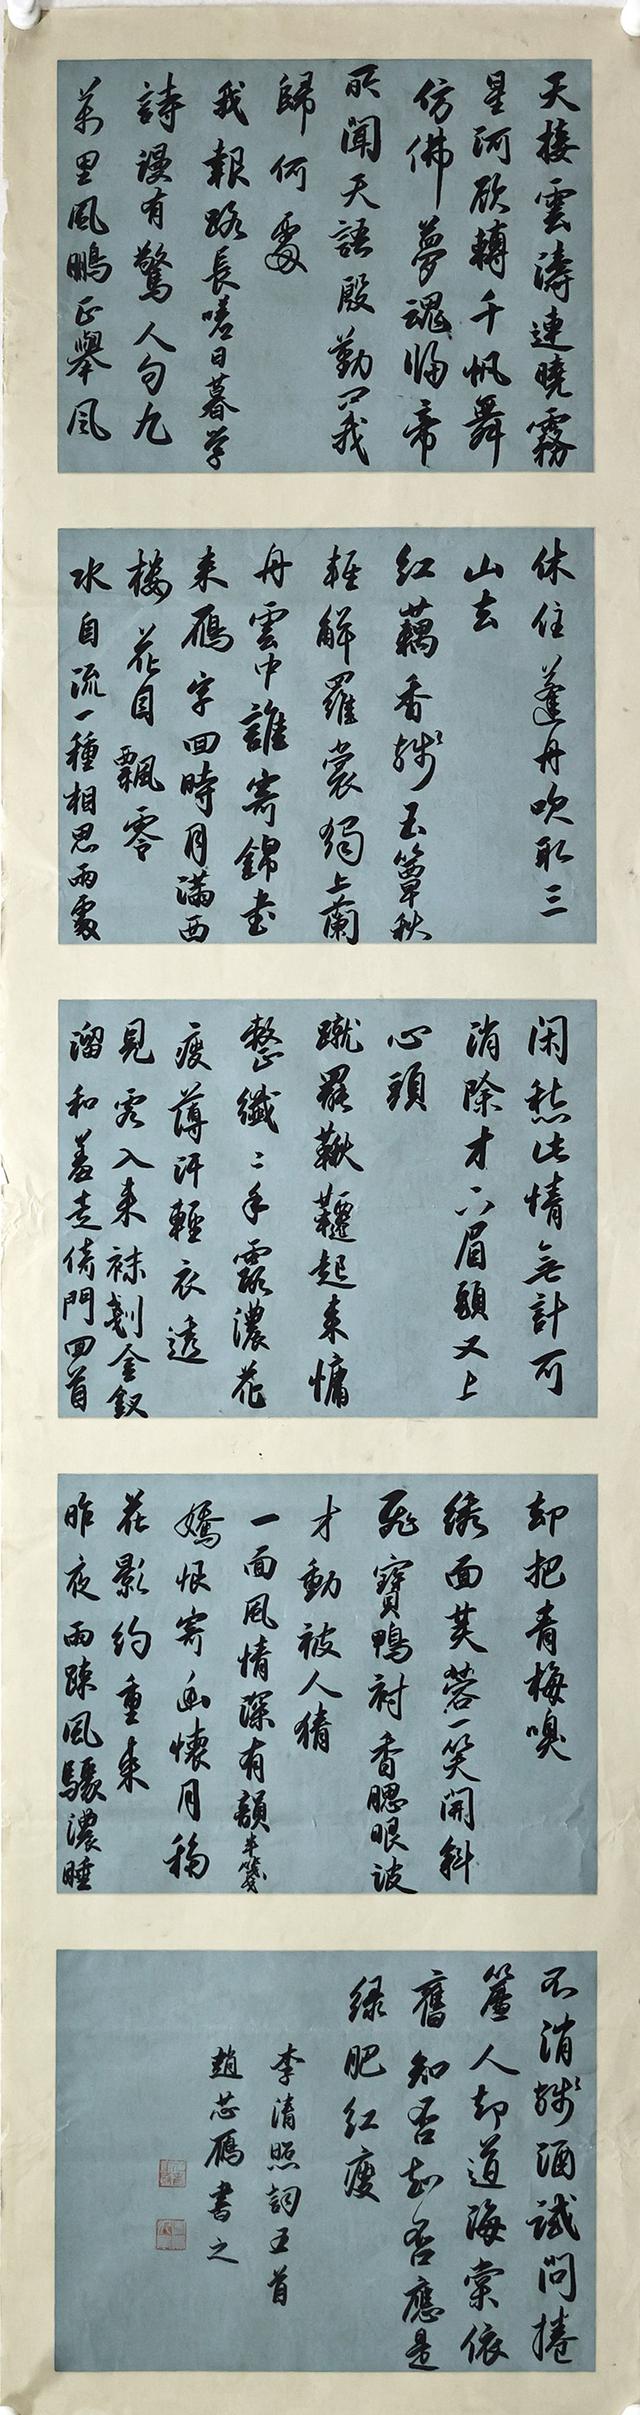 天接雲濤連曉霧
星河欲轉千帆舞
仿佛夢魂歸帝
所聞天語殷勤问我
歸何處
我報路長嗟日暮学
詩謾有驚人句九
萬里風鵬正舉風
休住蓬舟吹取三
山去
红藕香残玉簟秋
轻解羅裳獨上蘭
舟雲中誰寄錦书
来雁字回時月满西
楼花自飄零
水自流一種相思兩處
闲愁此情無計可
消除才下眉頭又上
心頭
蹴罷鞦韆起来慵
整纖〻手露濃花
瘦薄汗輕衣透
見客入来袜剗金釵
溜和羞走倚門回首
却把青梅嗅
绣面芙蓉一笑開斜
飛寶鴨衬香腮眼波
才動被人猜
一面風情深有韻半箋
嬌恨寄幽懷月移
花影約重来
昨夜雨疎風驟濃睡
不消残酒試問捲
簾人却道海棠依
舊知否知否應是
绿肥红瘦
李清照詞五首
趙芯雁書之